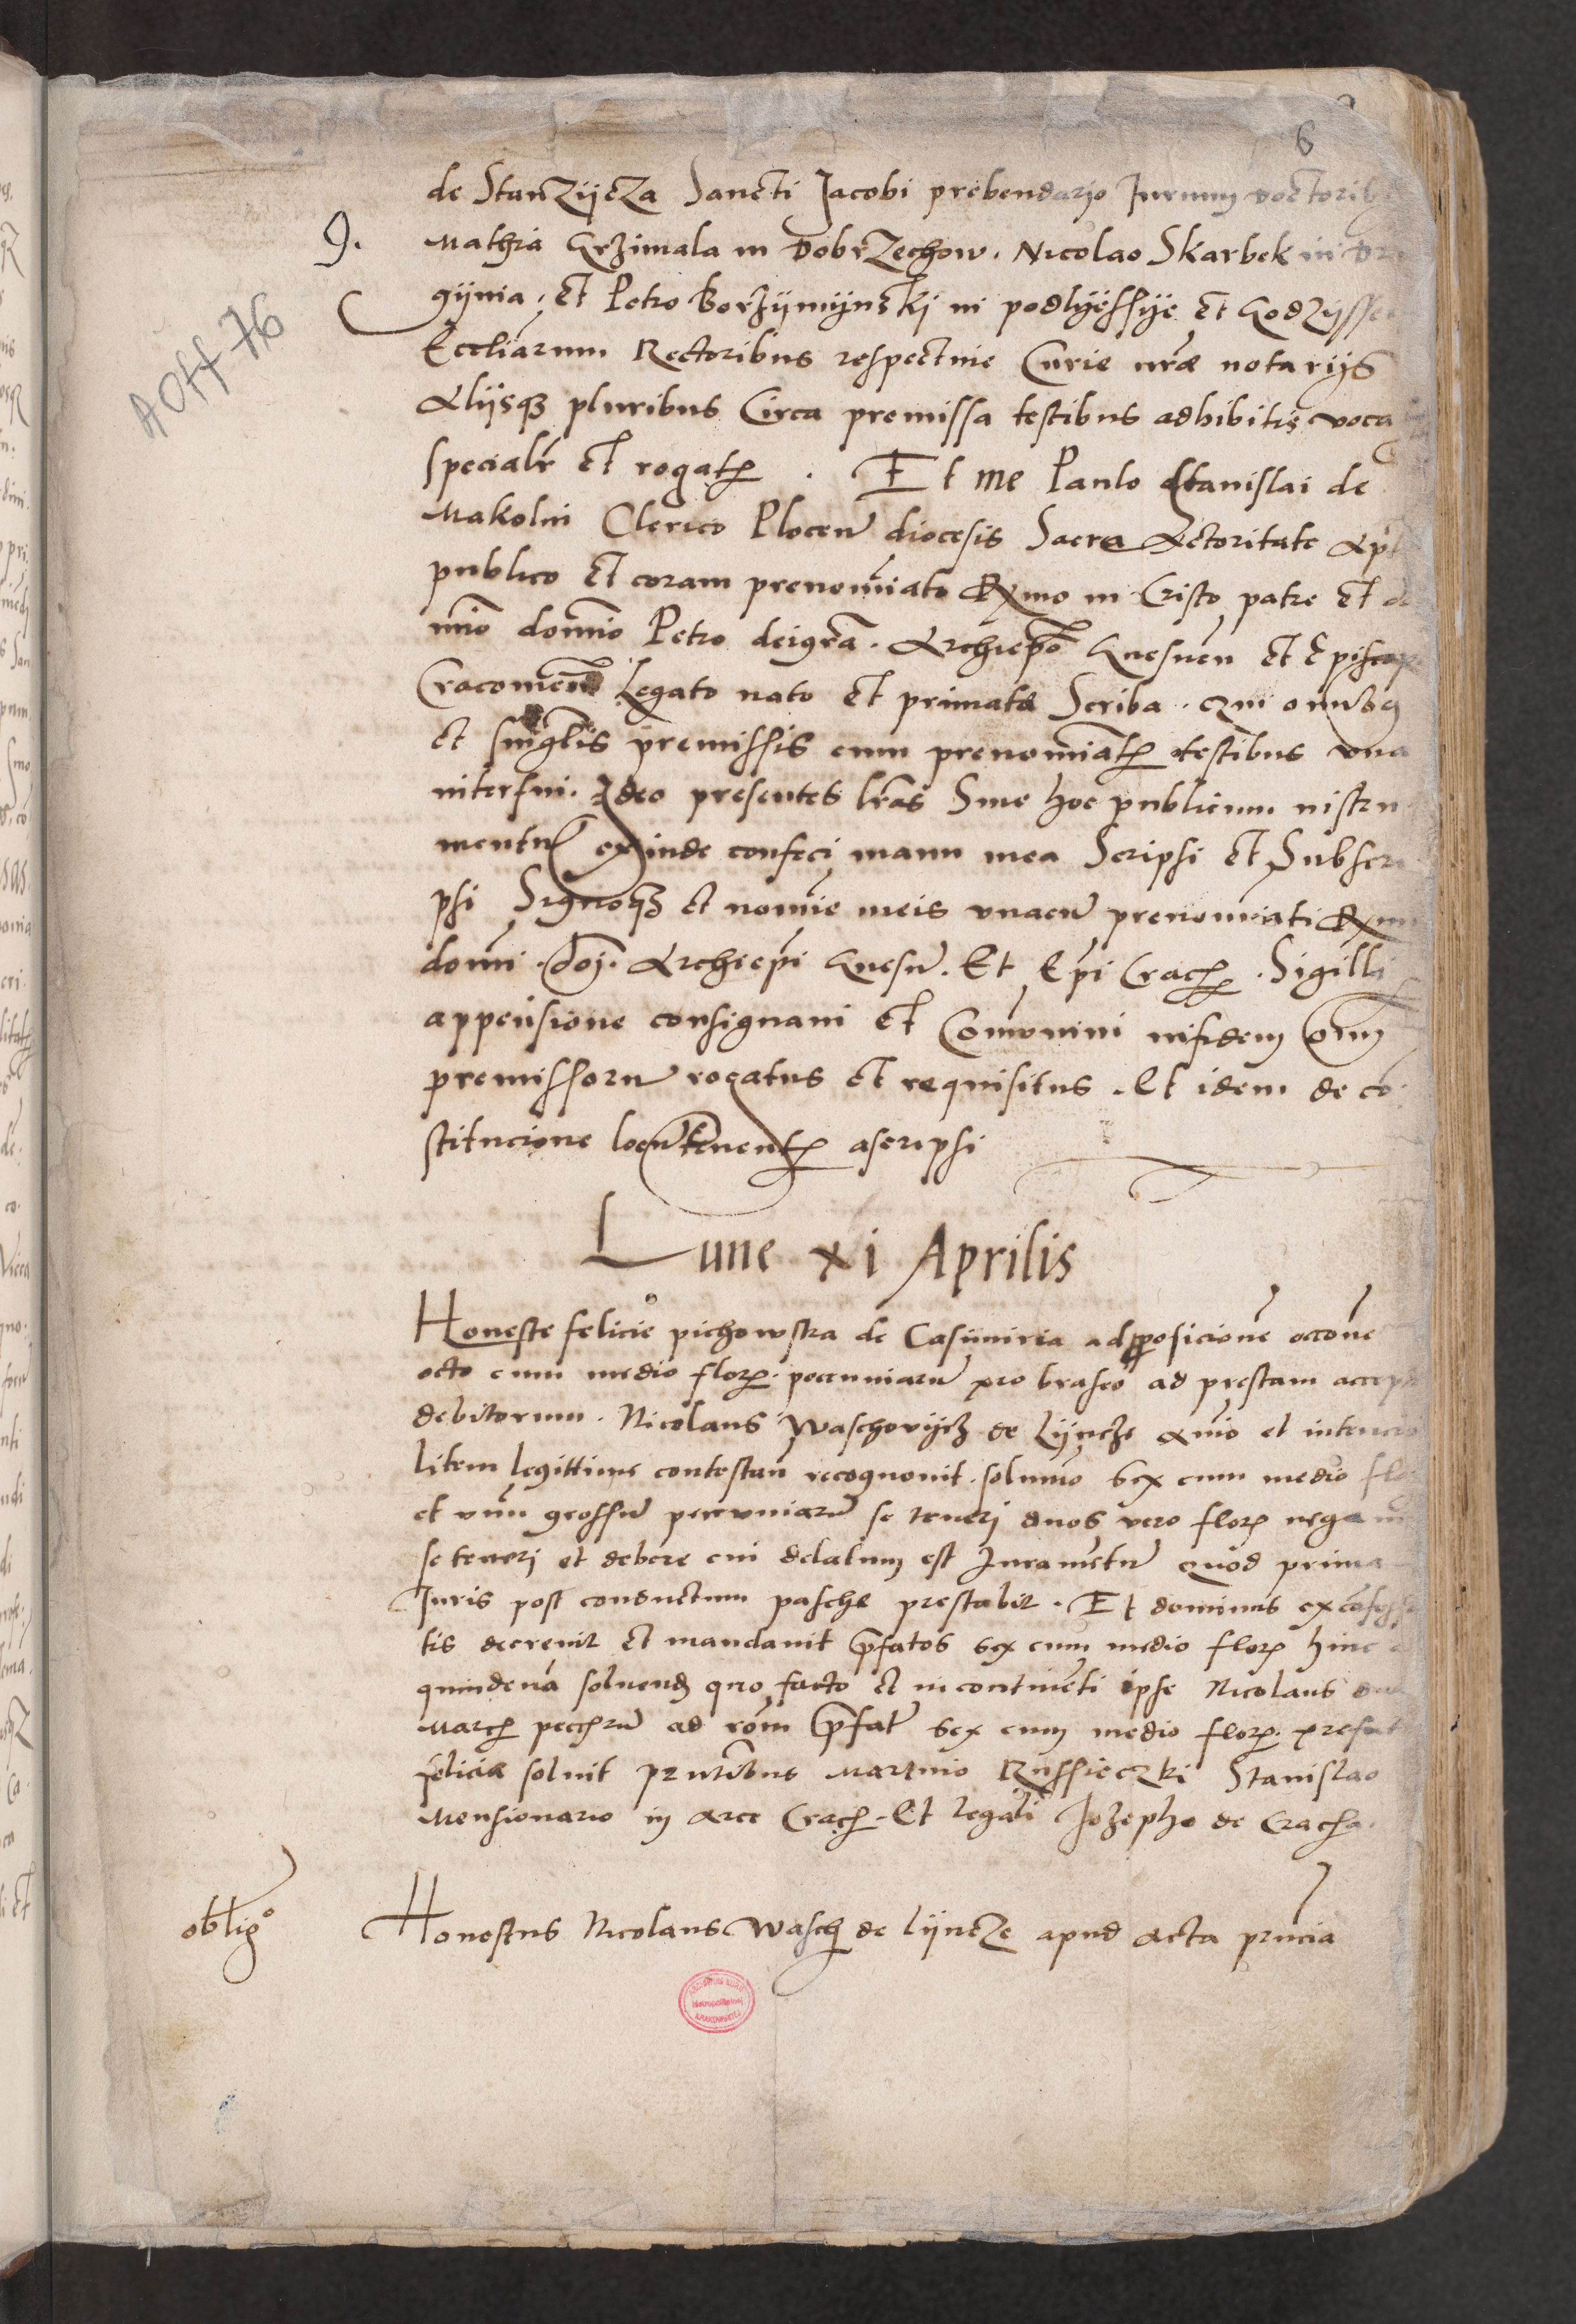 6
A Off 76
de StanZijcza Sancti Jacobi prebendario Jurium doctorib
Mathia Grzimala in DobrZechow. Nicolao Skarbek in
gijnia, et Petro Borzijmijnskj in podlyessye et Godzijss
Eccliarum Rectoribus respectiue Curie nrae notarijs
Alijsqz pluribus Circa premissa testibus adhibitis voca
specialr et rogatis . Et me Paulo Stanislai de
Makolin Clerico Plocen diocesis Sacra Actoritate Aplica
publico et coram prenominato Rxmo in Cristo patre et do
mio domio Petro deigra. Archiepo Gnesnen et Episcop
Cracouien Legato nato et primate Scriba. qui omibus
et singlis premissis cum prenominatis testibus vna
interfui. Ideo presentes lras Siue hoc publicum instru
mentu exinde confeci manu mea Scripsi et Subscri
psi Signoqz et nomie meis vnacu prenominati Rxmi
domi. doj. Archiepi Gnesn. Et Epi Crac. Sigilli
appensione consignaui et Comoniui infidem oim
premissoru rogatus et requisitus. Et idem de co
stitucione locutenentis ascripsi
Lune xi Aprilis
Honeste felicie pichowska de Casimiria ad proposicione accione
octo cum medio flor. pecuniaru pro braseo ad prestam accep
debitorum. Nicolaus Waschovijcz de Lijncze animo et intencio
litem legittime contestan recognouit. solumo sex cum medio flo
et vnu grossu pecuniaru se teneri duos vero flor nega
se teneri et debere cui delatum est Juramentu quod prima
Juris post conductum pasche prestabit. Et dominus ex confess
tis decreuit et mandauit prefatos sex cum medio flor hinc
quindena soluend quo facto et incontinenti ipse Nicolaus
Marc pecuru ad rom prefat sex cum medio flor. prefat
felicie soluit pntibus Martino Russieczki Stanislao
Mensionario in Arce Crac. Et legali Jozepho de Craca.
obligo
Honestus Nicolaus Wasch de Lijncze apud Acta pruncia